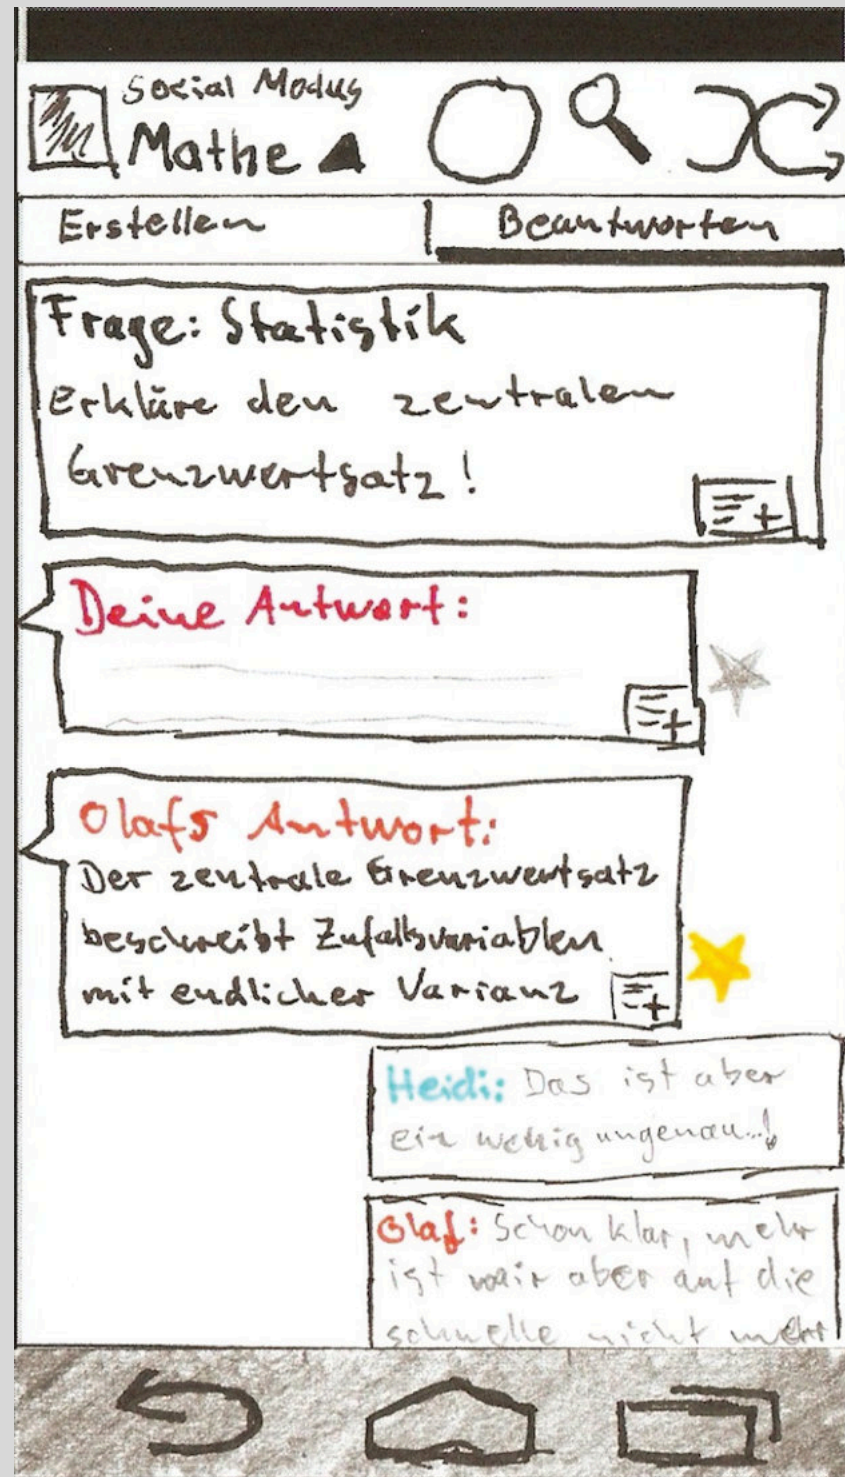 Social Modus
Mathe
Erstellen
Beantworten
Frage: Statistik
Erkläre den zentralen
Grenzwertsatz!
Deine Antwort:
Olafs Antwort:
Der zentrale Grenzwertsatz
beschreibt Zufallsvariablen
mit endlicher Varianz
Heidi: Das ist aber
ein wenig ungenau...!
Olaf: Schon klar, mehr
ist mir aber auf die
schnelle nicht mehr